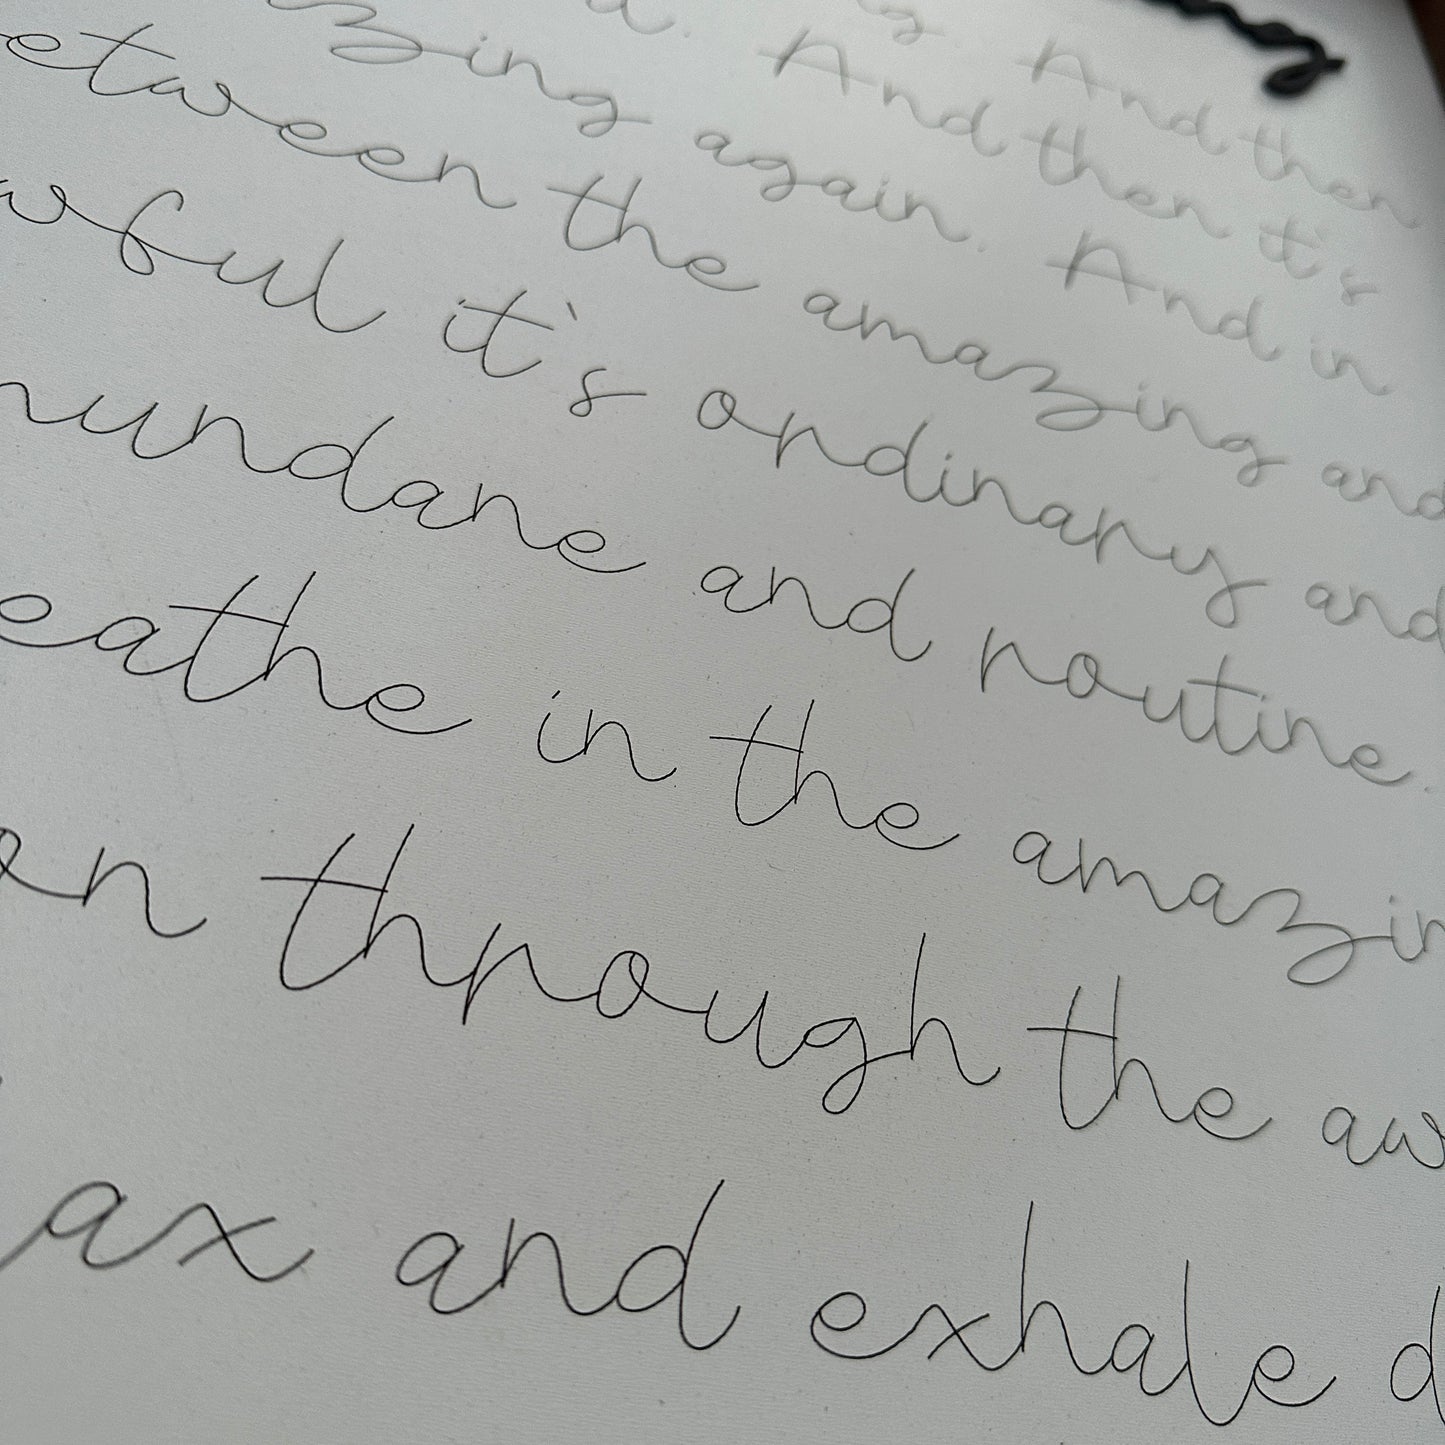 g. And then
d. And then it's
zing again. And in
etween the amazing and
wful it's ordinary and
mundane and routine.
eathe in the amazin
on through the aw
ax and exhale d